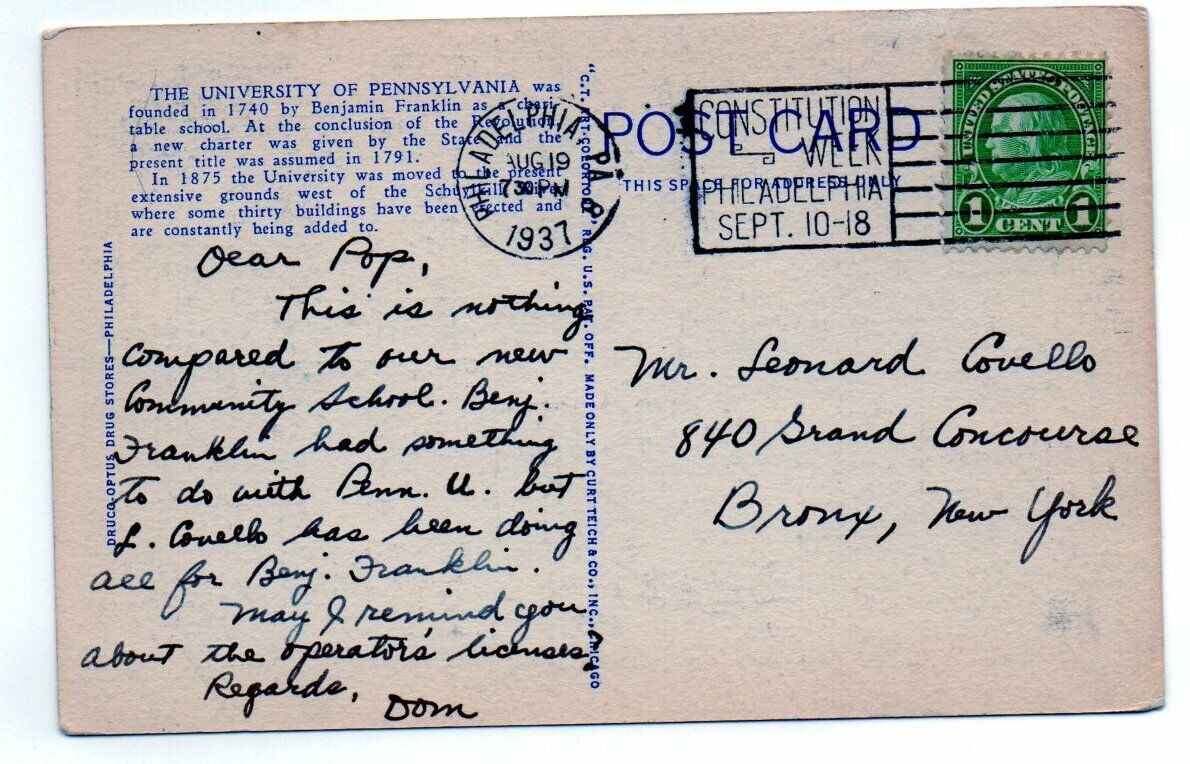 THE UNIVERSITY OF PENNSYLVANIA was
founded in 1740 by Benjamin Franklin as a chari
table school. At the conclusion of the Revolution,
a new charter was given by the State and the
present title was assumed in 1791.
In 1875 the University was moved to the present
extensive grounds west of the Schuylkill River
where some thirty buildings have been erected and
are constantly being added to.
Dear Pop,
This is nothing
compared to our new
Community School. Benj.
Franklin had something
to do with Penn. U. but
L. Covello has been doing
all for Benj. Franklin.
May I remind you
about the operator's licenses?
Regards,
Dom
DRUCO-OPTUS DRUG STORES—PHILADELPHIA
"C.T. ART-COLORTONE" REG. U.S. PAT. OFF. MADE ONLY BY CURT TEICH & CO., INC., CHICAGO
PHILADELPHIA, PA.
AUG 19
730 PM
1937
POST CARD
THIS SPACE FOR ADDRESS ONLY
CONSTITUTION
WEEK
PHILADELPHIA
SEPT. 10-18
UNITED STATES POSTAGE
1 CENT 1
Mr. Leonard Covello
840 Grand Concourse
Bronx, New York